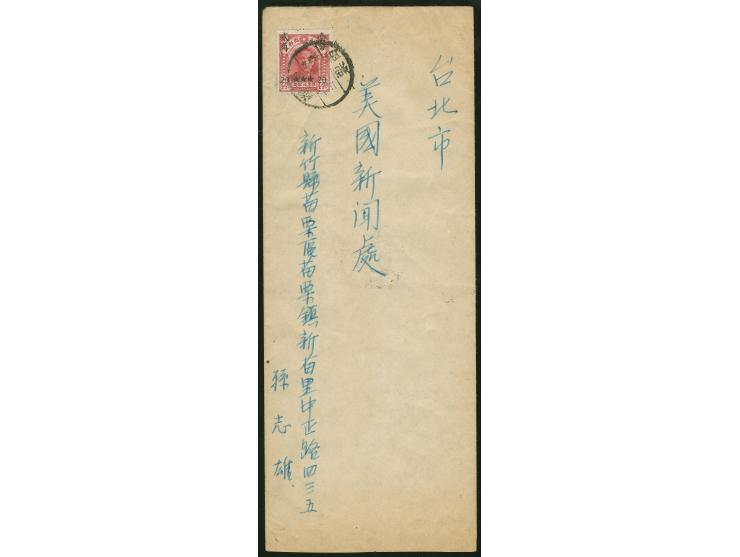 台北市
美國新闻處
新竹縣苗栗區苗栗鎮新苗里中正路四三五
孫志雄
20 20